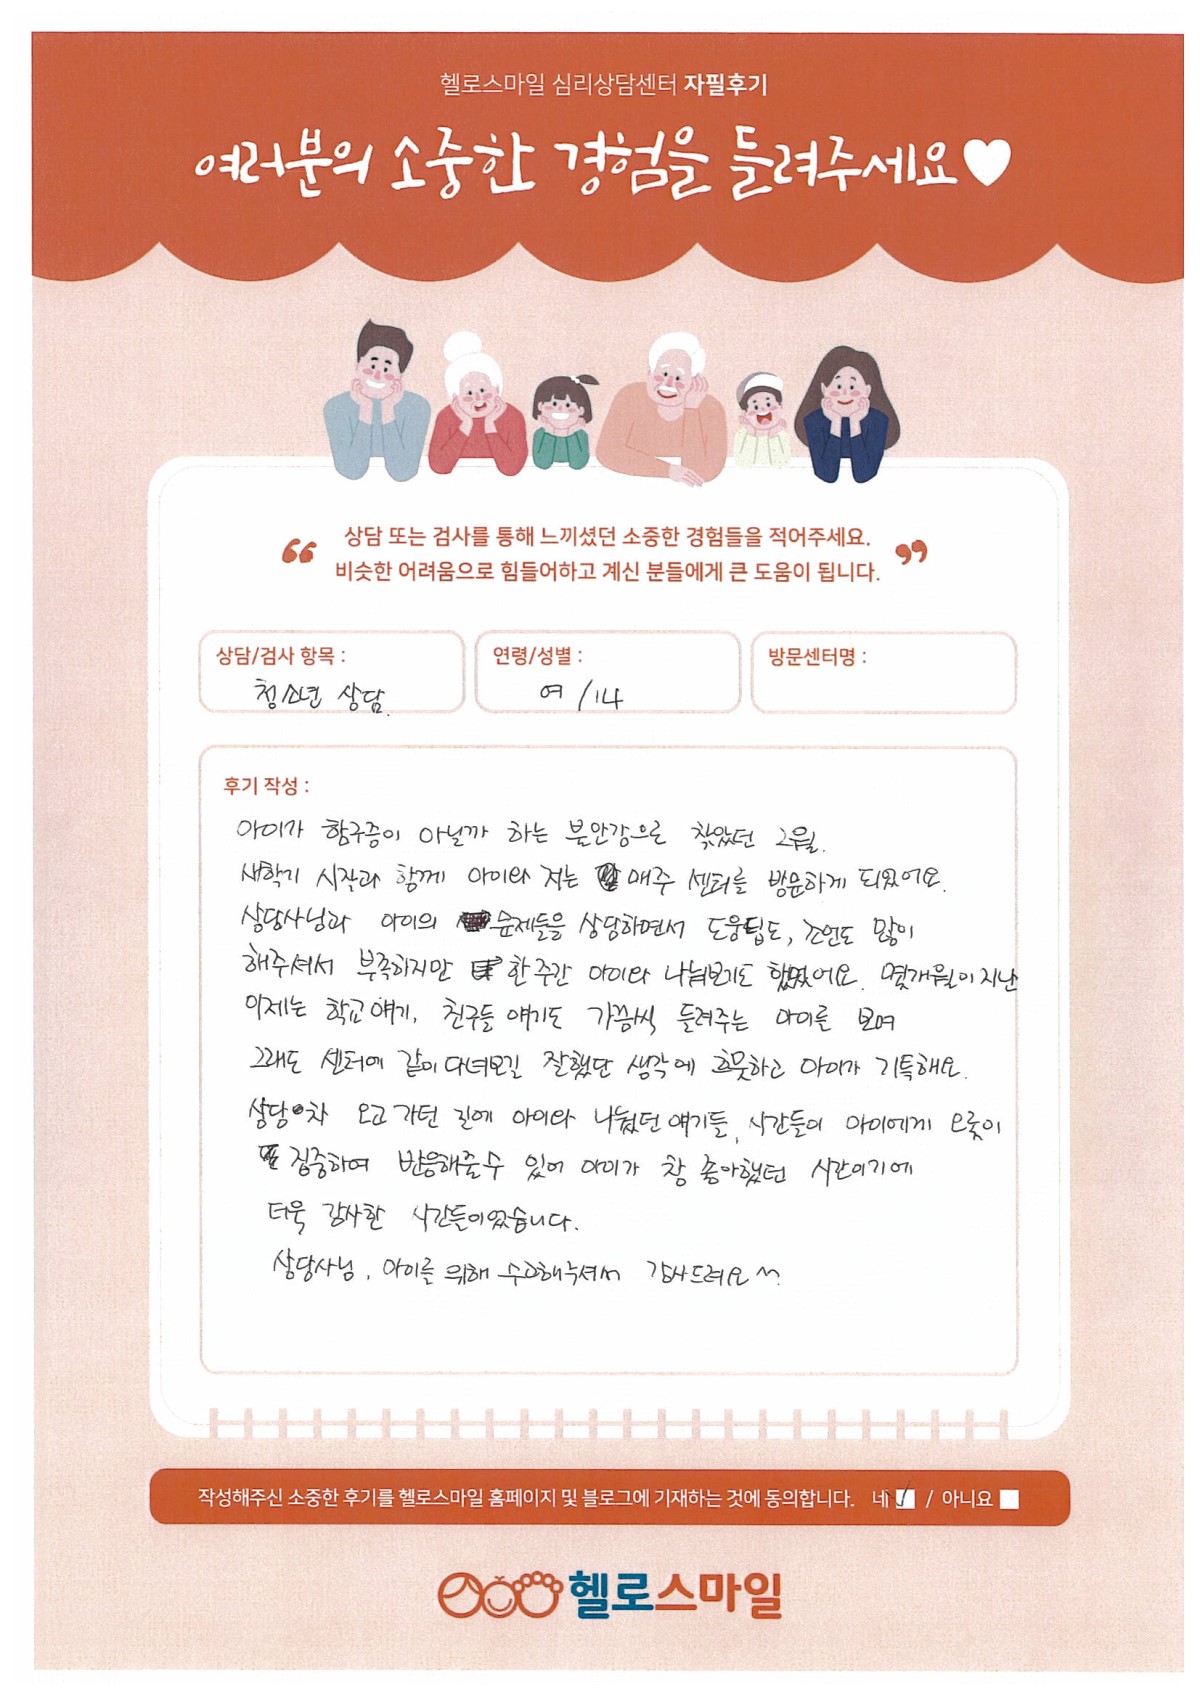 헬로스마일 심리상담센터 자필후기
여러분의 소중한 경험을 들려주세요♥
“ 상담 또는 검사를 통해 느끼셨던 소중한 경험들을 적어주세요. ”
비슷한 어려움으로 힘들어하고 계신 분들에게 큰 도움이 됩니다.
상담/검사 항목 :
청소년 상담.
연령/성별 :
여 / 14
방문센터명 :
후기 작성 :
아이가 함구증이 아닐까 하는 불안감으로 찾았던 2월.
새학기 시작과 함께 아이와 저는 매주 센터를 방문하게 되었어요.
상담사님과 아이의 문제들을 상담하면서 도움팁도, 조언도 많이
해주셔서 부족하지만 한 주간 아이와 나눠보기도 했었어요. 몇개월이 지난
이제는 학교 얘기, 친구들 얘기도 가끔씩 들려주는 아이를 보며
그래도 센터에 같이 다녀보길 잘했단 생각에 흐뭇하고 아이가 기특해요.
상담차 오고 가던 길에 아이와 나눴던 얘기들, 시간들이 아이에게 오롯이
집중하여 반응해줄 수 있어 아이가 참 좋아했던 시간이기에
더욱 감사한 시간들이었습니다.
상담사님, 아이를 위해 수고해주셔서 감사드려요 ^^
작성해주신 소중한 후기를 헬로스마일 홈페이지 및 블로그에 기재하는 것에 동의합니다. 네 / 아니요
헬로스마일